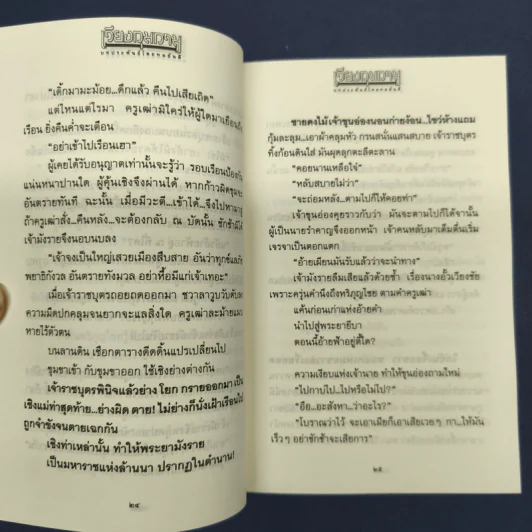 เวียงกุมกาม
บทประพันธ์โดยทมยันตี
"เด็กมามะม้อย...ดึกแล้ว คืนไปเสียเถิด"
แต่ไหนแต่ไรมา ครูเฒ่ามิใคร่ให้ผู้ใดมาเยือนถึง
เรือน ยิ่งคืนค่ำจะเตือน
"อย่าเข้าไปเรือนเฮา"
ผู้เคยได้รับอนุญาตเท่านั้นจะรู้ว่า รอบเรือนป้องกัน
แน่นหนาปานใด ผู้คุ้นเชิงจึงผ่านได้ หากก้าวผิดขุมจะ
อันตรายทันที ฉะนั้น เมื่อมีวะตี...เข้าได้...จึงไปหามาสู่
ถ้าครูเฒ่าสั่ง...คืนหลัง...จะต้องกลับ ณ บัดนั้น ชักช้ามิได้
เจ้ามังรายจึงนอบนบลง
"เจ้าจงเป็นใหญ่เสวยเมืองสืบสาย อันว่าทุกข์และภัย
พยาธิกังวล อันตรายทังมวล อย่าหื้อมีแก่เจ้าเทอะ"
เมื่อเจ้าราชบุตรถอยถดออกมา ชวาลาวูบวับดับลง
ความมืดปกคลุมจนยากจะแลสิ่งใด ครูเฒ่าละม้ายแม
หายไร้ตัวตน
บนลานดิน เชือกตารางตีดตื้นแปรเปลี่ยนไป
ขุมขาเข้า กับขุมขาออก ใช้เชิงย่างต่างกัน
เจ้าราชบุตรพินิจแล้วย่าง โยก กรายออกมา เป็น
เชิงแม่ท่าสุดท้าย...ย่างผิด ตาย! ไม่ย่างก็นั่งเฝ้าเรือนไป
ถูกจำขังจนตายเฉกกัน
เชิงท่าเหล่านั้น ทำให้พระยามังราย
เป็นมหาราชแห่งล้านนา ปรากฏในตำนาน!
๒๔
เวียงกุมกาม
บทประพันธ์โดยทมยันตี
ชายคงไม้ เจ้าขุนอ่องนอนก่ายง้อน...ไขว่ห้างแถม
กุ้มละลุม...เอาผ้าคลุมหัว กรนสนั่นแสนสบาย เจ้าราชบุตร
ทิ้งก้อนดินใส่ มันผุดลุกตะลีตะลาน
"คอยนานเหลือใจ๋"
"หลับสบายไม่ว่า"
"จะถ่อมหลัง...ตามไปก็ให้คอยท่า"
เจ้าขุนอ่องคุยราวกับว่า มันจะตามไปก็ได้จานั้น
ผู้เป็นนายรำคาญจึงออกหน้า เจ้าคนหลับมาเต็มตื่นเริ่ม
เจรจาเป็นตอกแตก
"อ้ายเผียมันรับแล้วว่าจะนำทาง"
เจ้ามังรายลืมเสียแล้วด้วยซ้ำ เรื่องนางอั้วเวียงชัย
เพราะครุ่นคำนึงถึงหริภุญไชย ตามคำครูเฒ่า
แค้นก่อนเก่าแห่งอ้ายคำ
นำไปสู่พระยายีบา
ตอนนี้อ้ายฟ้าอยู่ตี้ใด?
ความเงียบแห่งเจ้านาย ทำให้ขุนอ่องถามใหม่
"ไปกาบไป่...ไปหรือไม่ไป?"
"อือ...อะสังหา...ว่าอะไร?"
"โบราณว่าไว้ จะเอาเมียก็เอาเสียเวย ๆ กา...ให้มัน
เร็ว ๆ อย่าชักช้าจะเสียการ"
๒๕